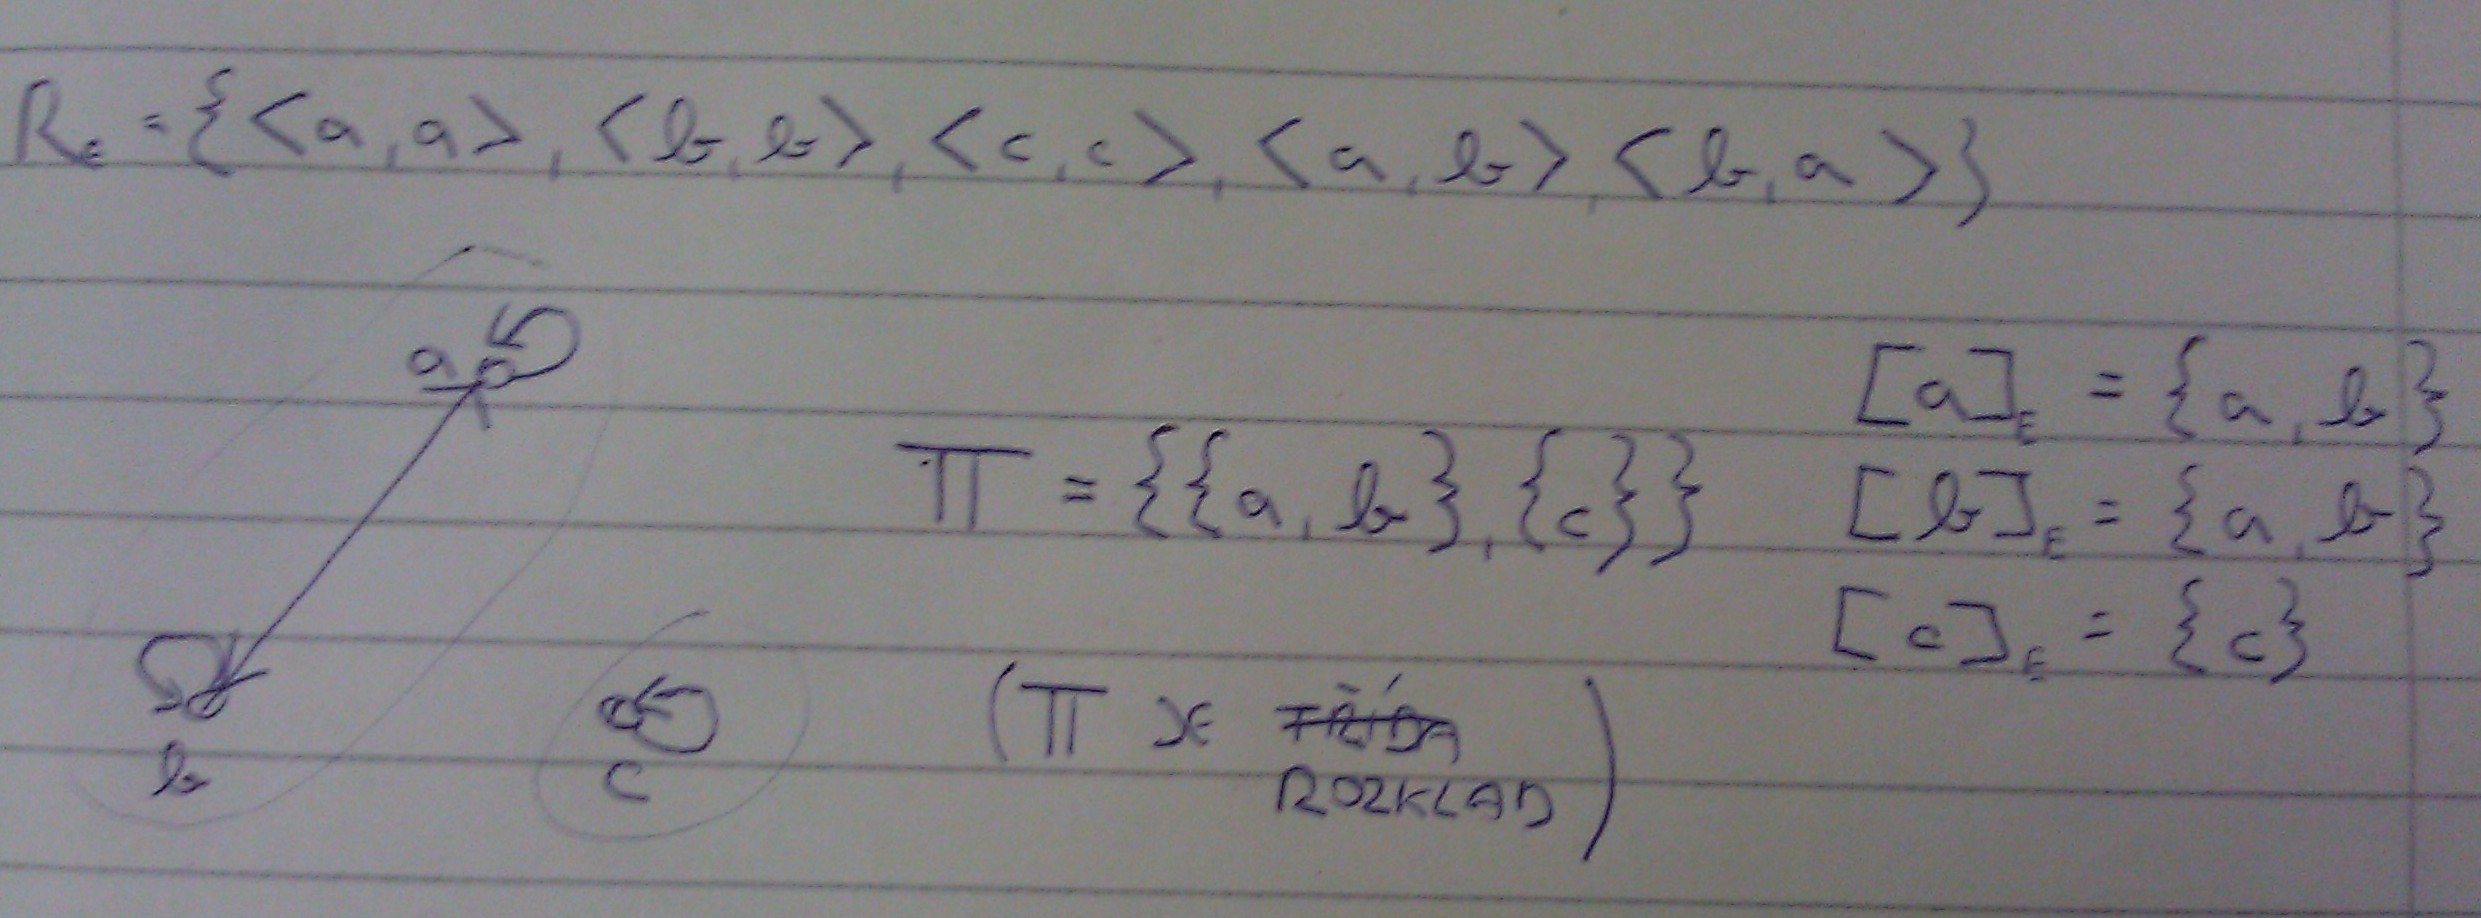 R_E = {<a,a>, <b,b>, <c,c>, <a,b>, <b,a>}
a
[a]_E = {a, b}
Π = {{a, b}, {c}}
[b]_E = {a, b}
[c]_E = {c}
b
c
(Π JE TŘÍDA
ROZKLAD)